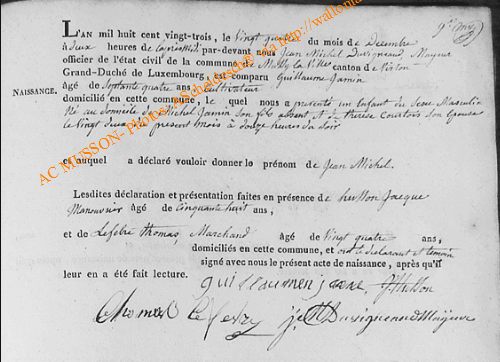 L'AN mil huit cent vingt-trois, le vingt quatre du mois de Décembre
à deux heures de par-devant nous Jean Michel Mayeur
officier de l'état civil de la commune de la Ville canton de Virton
Grand-Duché de Luxembourg, est comparu Guillaume Jamin
NAISSANCE.
âgé de Septante quatre ans, Cultivateur
domicilié en cette commune, lequel nous a présenté un Enfant du Sexe Masculin
Né au Domicile de Michel Jamin son fils absent et de thérèse Courtois son épouse
le vingt deux du présent mois à heures du Soir
et auquel a déclaré vouloir donner le prénom de Jean Michel.
Lesdites déclaration et présentation faites en présence de husson Jacque
Manouvrier âgé de Cinquante huit ans,
et de Lefebre thomas, Marchand âgé de Vingt quatre ans,
domiciliés en cette commune, et ont le déclarant et temoin
signé avec nous le présent acte de naissance, après qu'il
leur en a été fait lecture.
J. husson
thomas Mayeur
AC MUSSON- Photos A Schadeck via http://wallonia